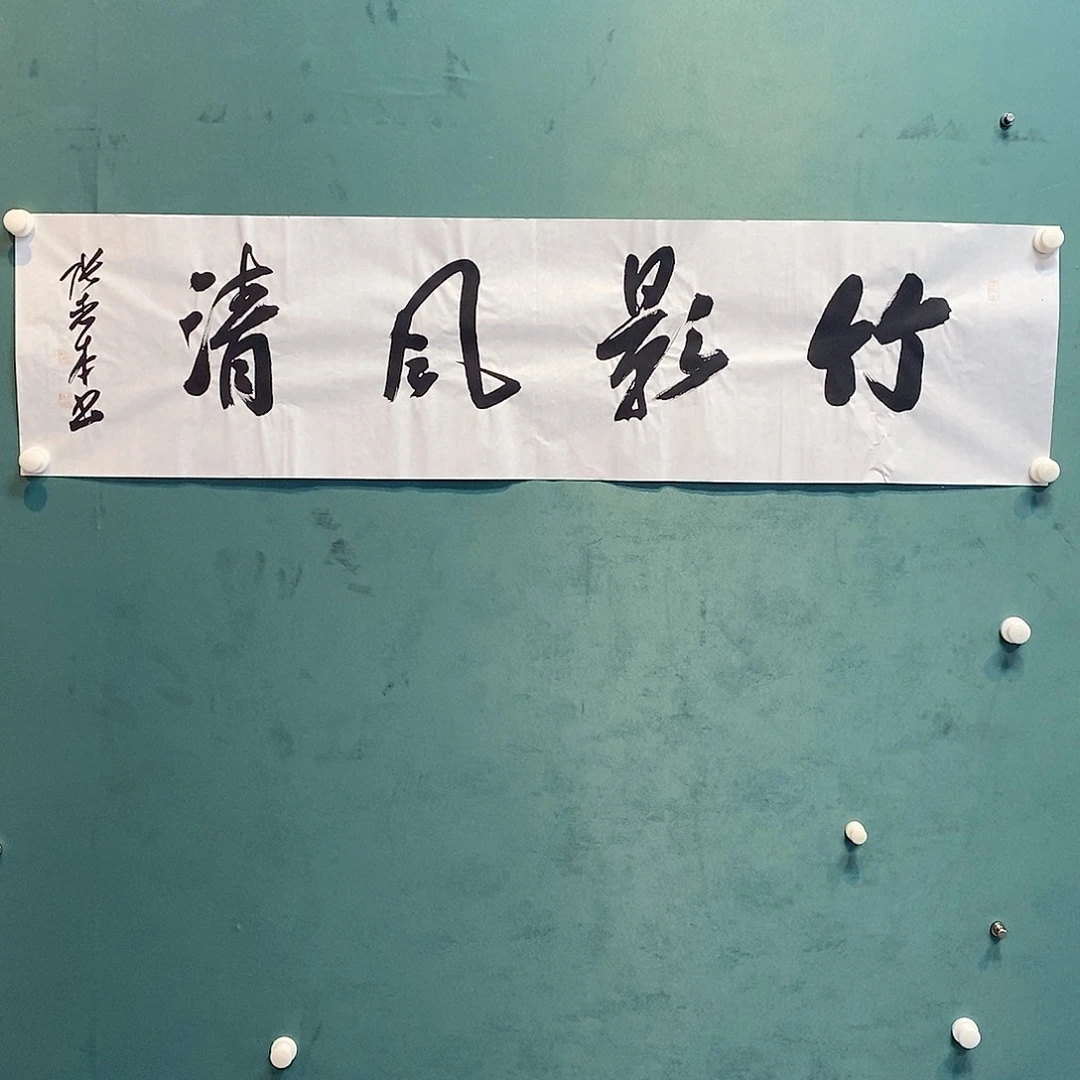 竹影风清